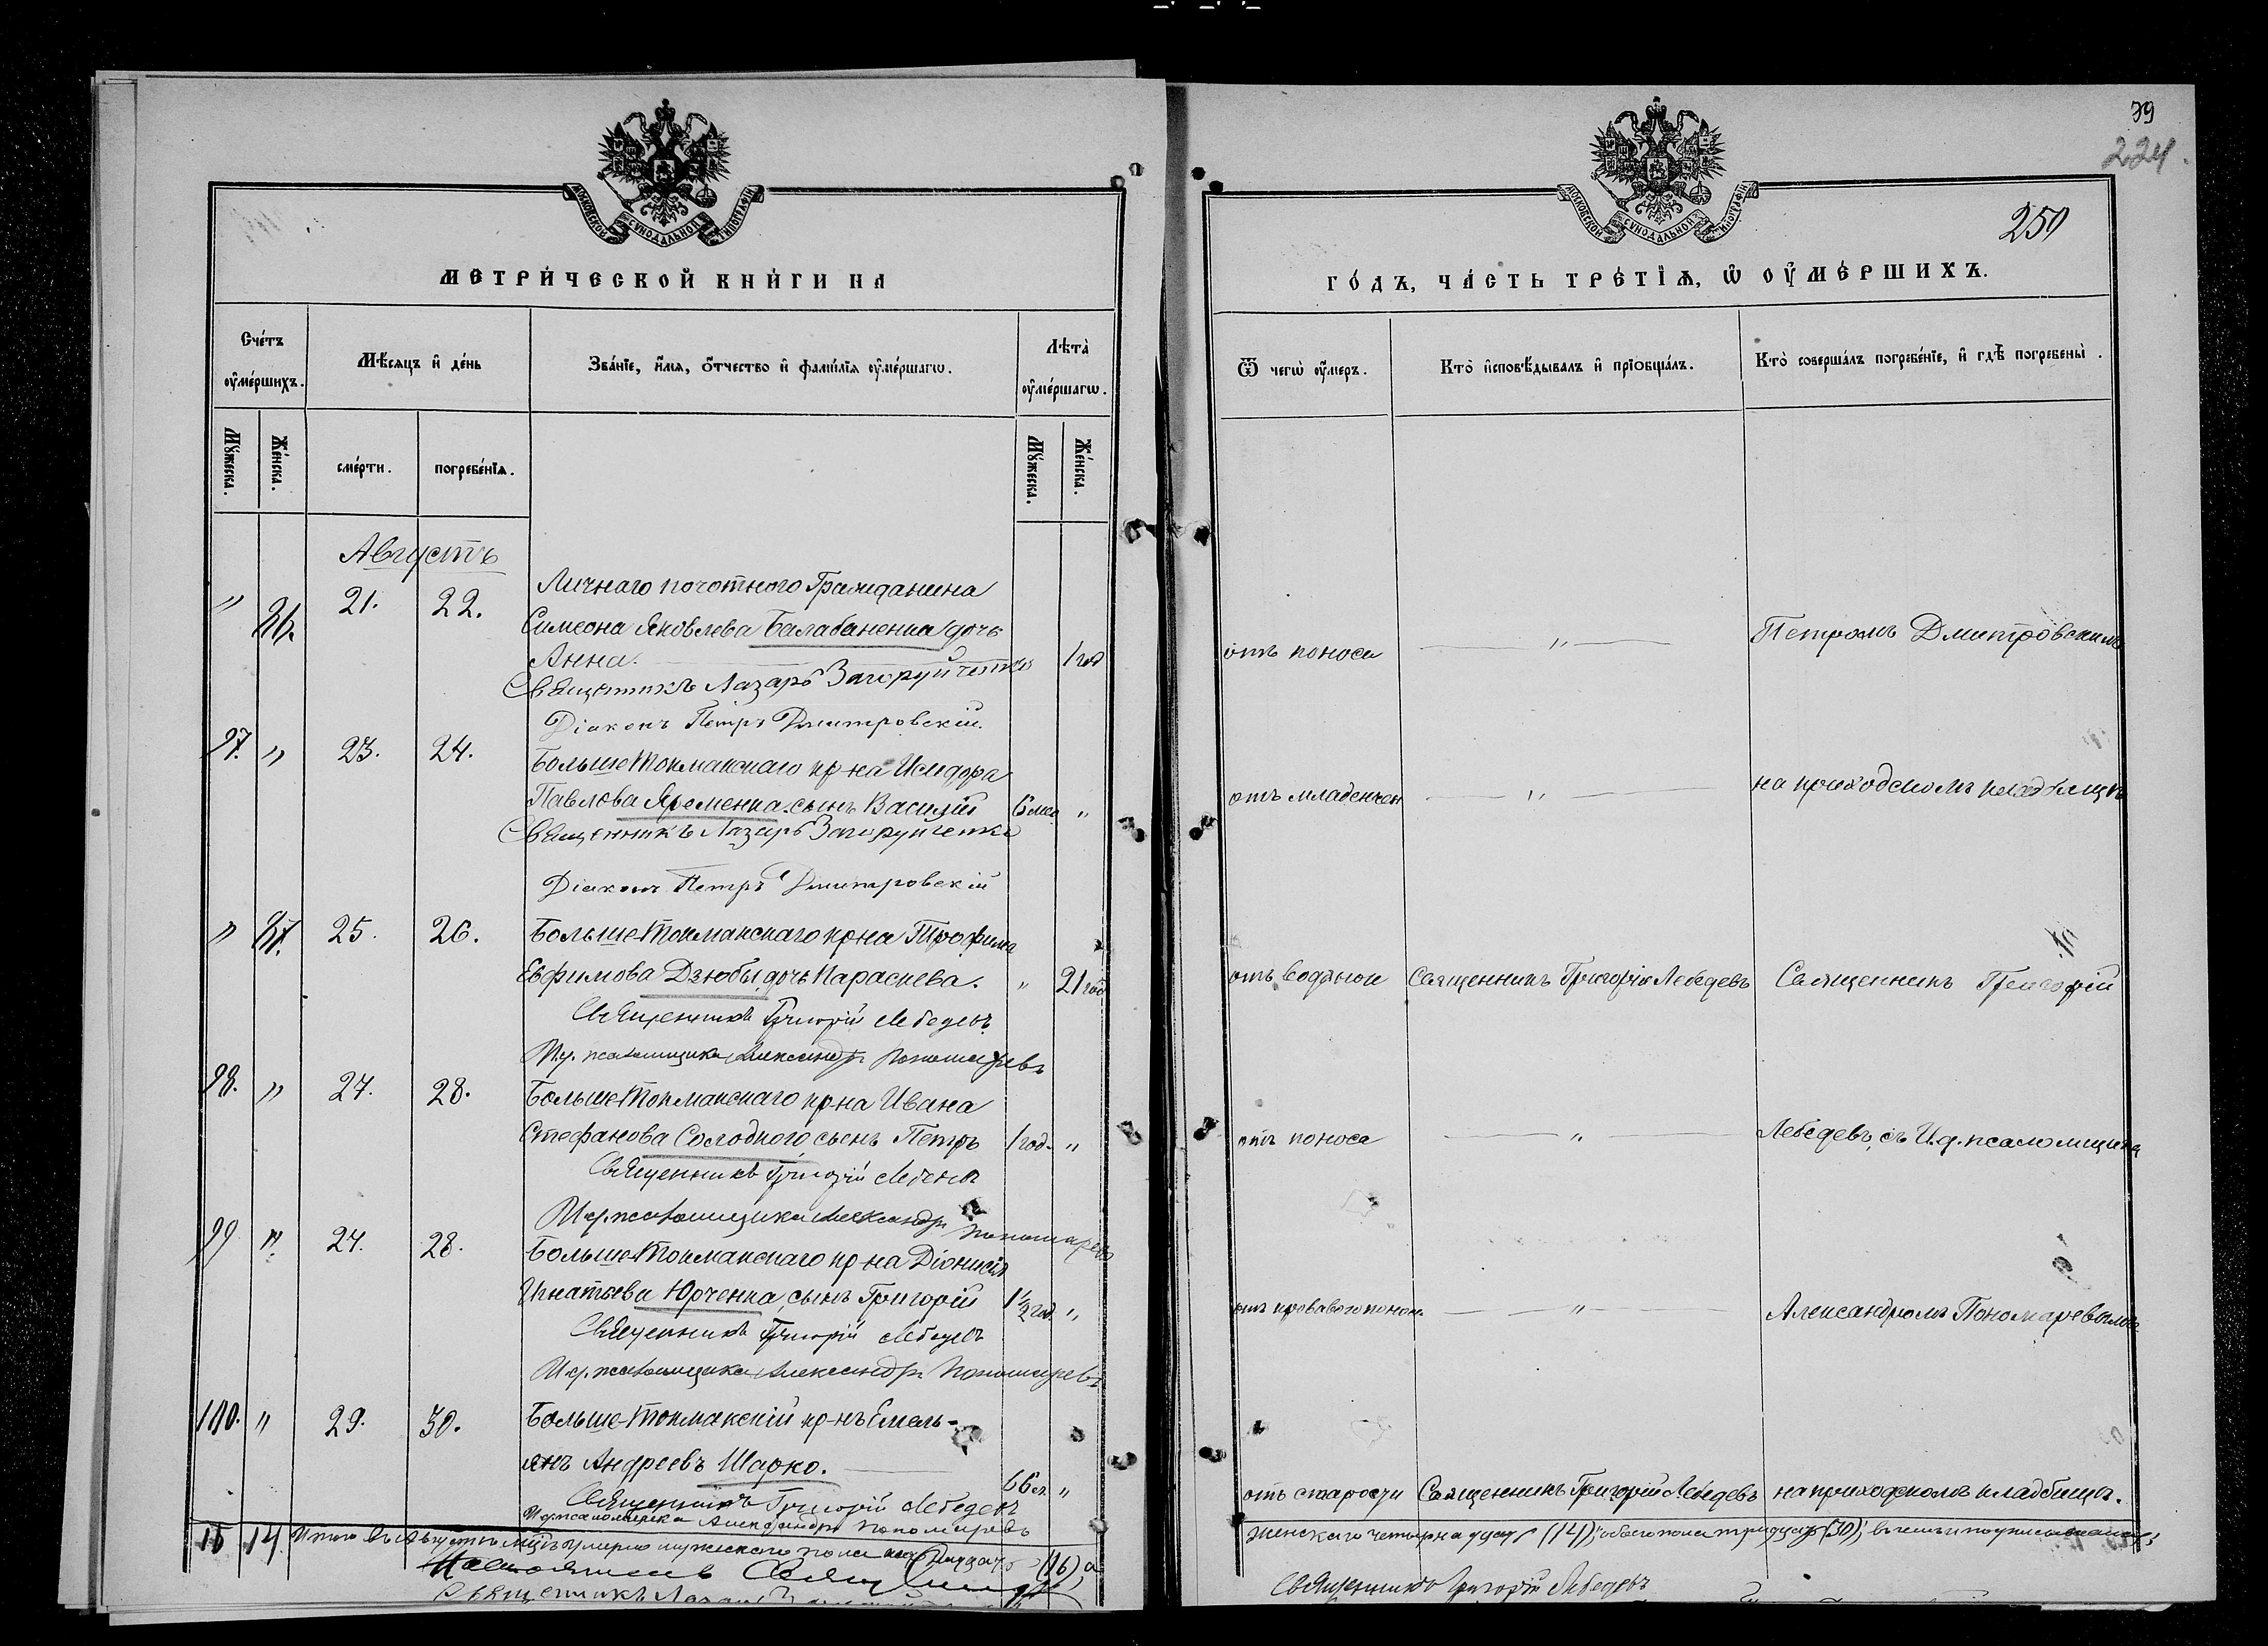 39
224.
250
МОСКОВСКОЙ СУНОДАЛЬНОЙ ТИПОГРАФІИ
МЕТРИ́ЧЕСКОЙ КНИ́ГИ НА
Сче́тъ ᲂу҆ме́ршихъ.
Мѣ́сяцъ и҆ де́нь
Зва́нїе, и҆́мѧ, ѻ҆́тчество и҆ фами́лїѧ ᲂу҆ме́ршагѡ.
Лѣта̀ ᲂу҆ме́ршагѡ.
Мꙋ́жеска.
Же́нска.
сме́рти.
погребе́нїѧ.
Мꙋ́жеска.
Же́нска.
Августъ
" 86. 21. 22. Личнаго почотного Гражданина
Симеона Яковлева Балабаненка дочь
Анна. 1 год
Священникъ Лазарь Загоруйченко
Діаконъ Петръ Дмитровскій.
97. " 23. 24. Больше Токмакскаго кр-на Исидора
Павлова Яременка сынъ Василій 6 мес. "
Священникъ Лазарь Загоруйченко
Діаконъ Петръ Дмитровскій
" 87. 25. 26. Больше-Токмакскаго кр-на Трофима
Евфимова Дзюбы дочь Параскева. " 21 год
Священникъ Григорій Лебедевъ
И.д. псаломщика Александръ Пономаревъ
98. " 27. 28. Больше-Токмакскаго кр-на Ивана
Стефанова Солодкого, сынъ Петръ 1 год. "
Священникъ Григорій Лебедевъ
И.д. псаломщика Александръ Пономаревъ
99 " 27. 28. Больше-Токмакскаго кр-на Діонисія
Игнатьева Юрченка, сынъ Григорій 1½ год. "
Священникъ Григорій Лебедевъ
И.д. псаломщика Александръ Пономаревъ
100. " 29. 30. Больше-Токмакскій кр-нъ Емель-
янъ Андреевъ Шарко. 66 л. "
Священникъ Григорій Лебедевъ
И.д. псаломщика Александръ Пономаревъ
16 14 Итого въ Августѣ мцѣ умерло мужескаго пола (16), а
Священникъ
Священникъ Лазарь
МОСКОВСКОЙ СУНОДАЛЬНОЙ ТИПОГРАФІИ
ГО́ДЪ, ЧА́СТЬ ТРЕ́ТЇѦ, Ѡ҆ ОУ҆МЕ́РШИХЪ.
Ѿ чегѡ̀ ᲂу҆́меръ.
Кто̀ и҆сповѣ́дывалъ и҆ прїѡбща́лъ.
Кто̀ соверша́лъ погребе́нїе, и҆ гдѣ̀ погребены̀.
отъ поноса " Петромъ Дмитровскимъ
отъ младенчес " на приходскомъ кладбищѣ
отъ водянои Священникъ Григорій Лебедевъ Священникъ Григорій
отъ поноса " Лебедевъ, съ И.д. псаломщика
отъ кроваваго поноса " Александромъ Пономаревымъ
отъ старости Священникъ Григорій Лебедевъ на приходскомъ кладбищѣ.
женскаго четырнадцать (14), обоего пола тридцать (30), въ чемъ и подписываемся:
Священникъ Григорій Лебедевъ